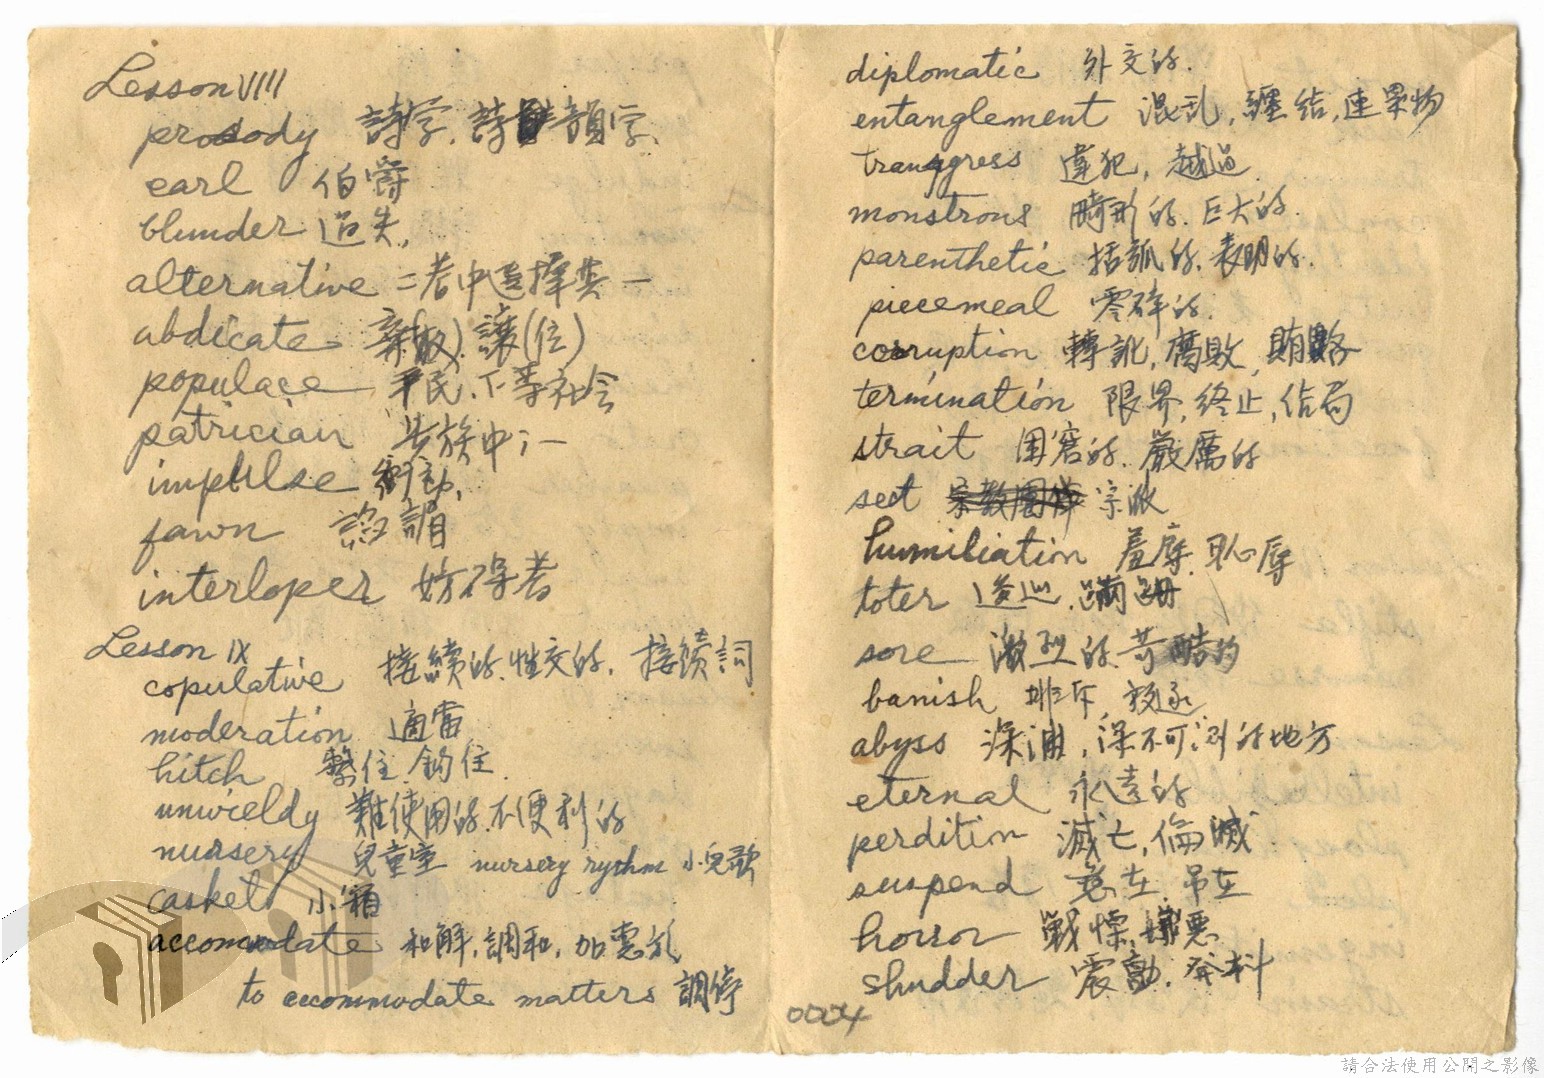 Lesson VIIII
prosody 詩学, 詩韻字、
earl 伯爵
blunder 過失,
alternative 二者中選擇其一
abdicate 辭(職), 讓(位)
populace 平民、下等社会
patrician 貴族中之一
impulse 衝動,
fawn 諂媚
interloper 妨碍者
Lesson IX
copulative 接續的, 性交的, 接續詞
moderation 適當
hitch 繫住, 鈎住
unwieldy 難使用的, 不便利的
nursery 兒童室 nursery rythm 小兒歌
casket 小箱
accommodate 和解, 調和, 加惠於
to accommodate matters 調停
diplomatic 外交的.
entanglement 混乱, 纏結, 連累物
transgress 違犯, 越過
monstrous 畸形的, 巨大的
parenthetic 括弧的, 表明的.
piecemeal 零碎的.
corruption 轉訛, 腐敗, 賄賂
termination 限界, 終止, 結局
strait 困窘的, 嚴厲的
sect 宗教團体 宗派
humiliation 羞辱, 恥辱
toter
sore 激烈的, 苛酷的
banish 排斥, 放逐
abyss 深淵, 深不可測的地方
eternal 永遠的
perdition 滅亡, 淪滅
suspend 吊在
horror 戰慄, 嫌悪
shudder 震動, 發抖
0004
請合法使用公開之影像